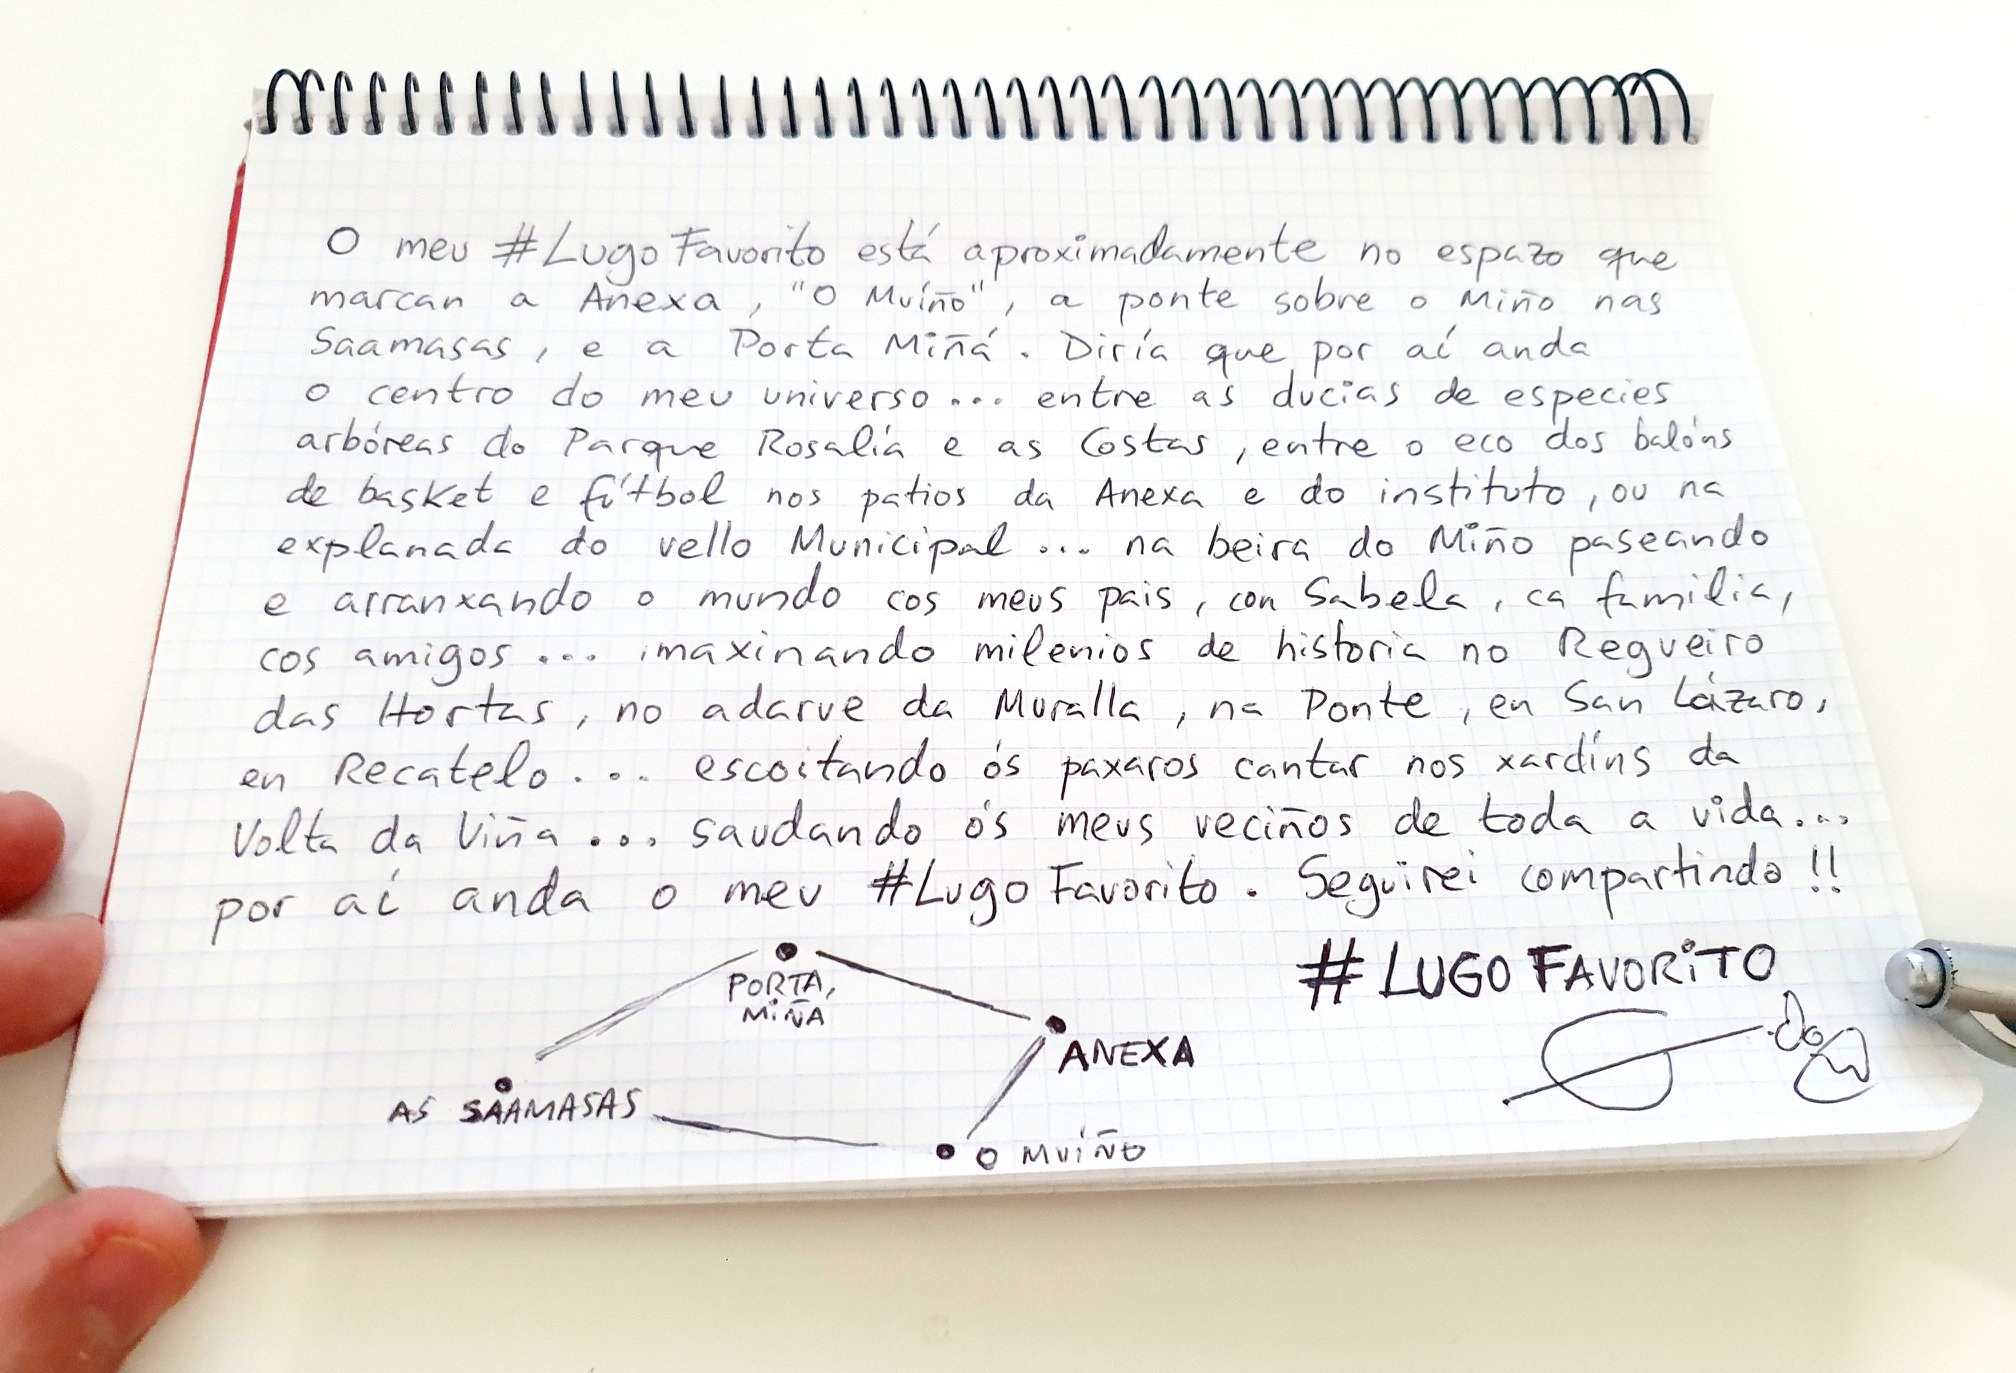 O meu #LugoFavorito está aproximadamente no espazo que
marcan a Anexa, "O Muíño", a ponte sobre o Miño nas
Saamasas, e a Porta Miñá. Diría que por aí anda
o centro do meu universo... entre as ducias de especies
arbóreas do Parque Rosalía e as Costas, entre o eco dos balóns
de basket e fútbol nos patios da Anexa e do instituto, ou na
explanada do vello Municipal... na beira do Miño paseando
e arranxando o mundo cos meus pais, con Sabela, ca familia,
cos amigos... imaxinando milenios de historia no Regueiro
das Hortas, no adarve da Muralla, na Ponte, en San Lázaro,
en Recatelo... escoitando ós paxaros cantar nos xardíns da
Volta da Viña... saudando ós meus veciños de toda a vida...
por aí anda o meu #LugoFavorito. Seguirei compartindo!!
#LUGOFAVORiTO
PORTA
MIÑÁ
ANEXA
AS SAAMASAS
O MUÍÑO